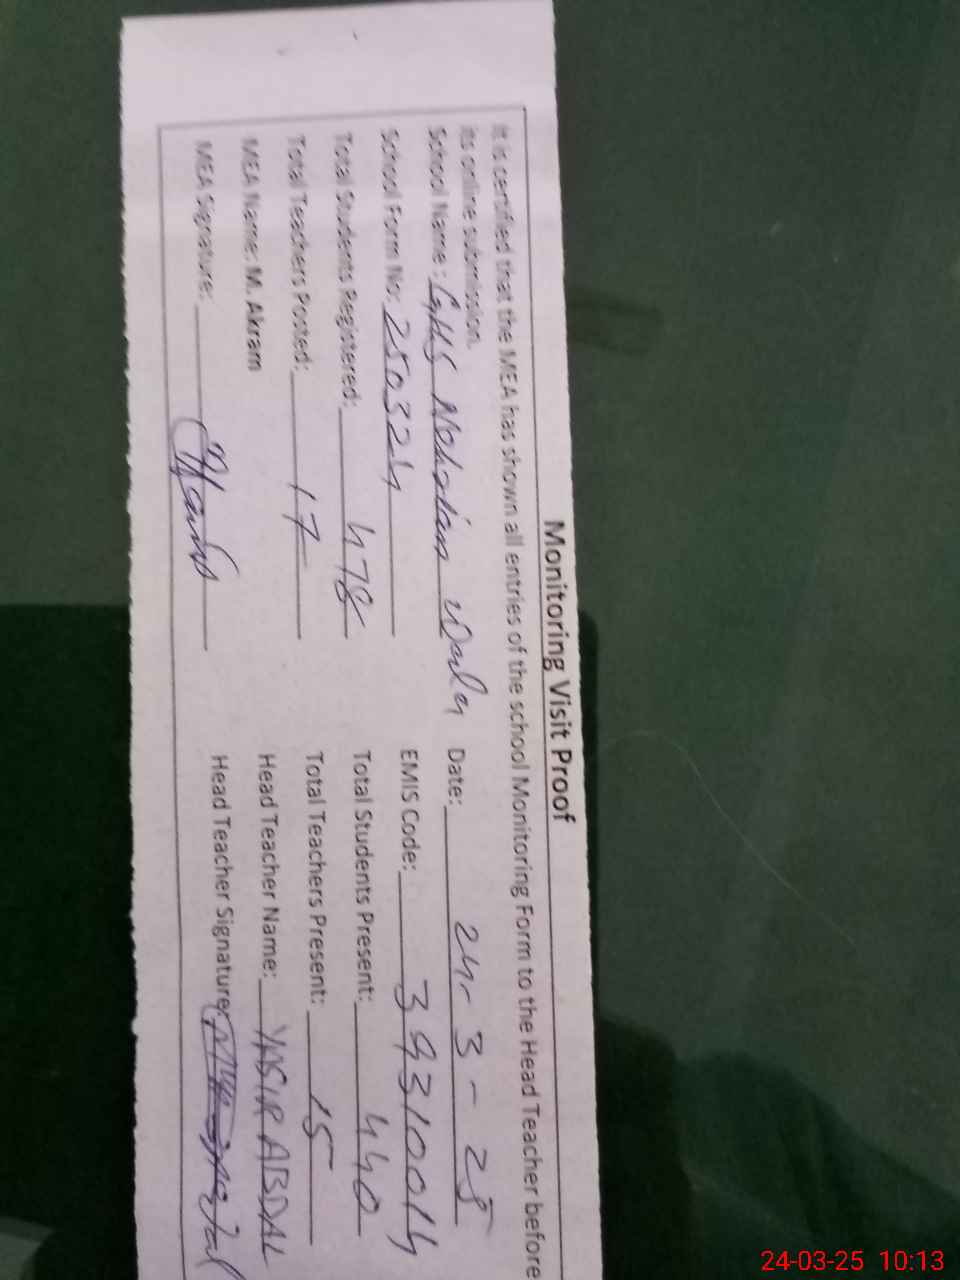 Monitoring Visit Proof
It is certified that the MEA has shown all entries of the school Monitoring Form to the Head Teacher before
its online submission.
School Name: GHS Date: 24-3-25
School Form No: 250324 EMIS Code: 39310014
Total Students Registered: 478 Total Students Present: 440
Total Teachers Posted: 17 Total Teachers Present: 15
MEA Name: M. Akram Head Teacher Name: YASIR ABDAL
MEA Signature: Head Teacher Signature:
24-03-25 10:13